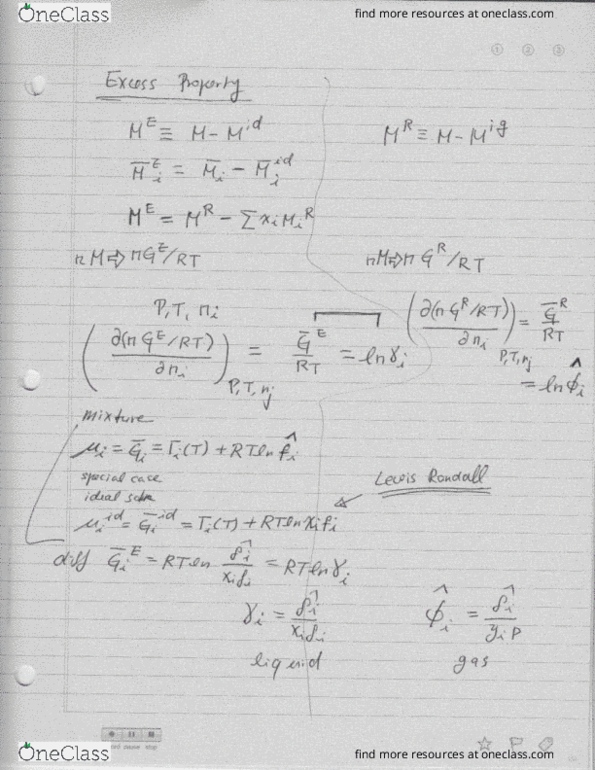 OneClass find more resources at oneclass.com
① ② ③
Excess Property
M^E ≡ M - M^id
M^R ≡ M - M^ig
M̄_i^E = M̄_i - M̄_i^id
M^E = M^R - Σ x_i M_i^R
nM ⇒ nG^E/RT
nM ⇒ n G^R/RT
P, T, n_i
(∂(n G^E/RT)/∂n_i)_P,T,n_j = Ḡ^E/RT = ln γ_i
(∂(n G^R/RT)/∂n_i)_P,T,n_j = Ḡ^R/RT
= ln φ̂_i
mixture
μ_i = Ḡ_i = Γ_i(T) + RT ln f̂_i
special case
Lewis Randall
ideal soln
μ_i^id = Ḡ_i^id = Γ_i(T) + RT ln x_i f_i
diff Ḡ_i^E = RT ln f̂_i/x_i f_i = RT ln γ_i
γ_i = f̂_i/x_i f_i
φ̂_i = f̂_i/y_i P
liquid
gas
OneClass find more resources at oneclass.com